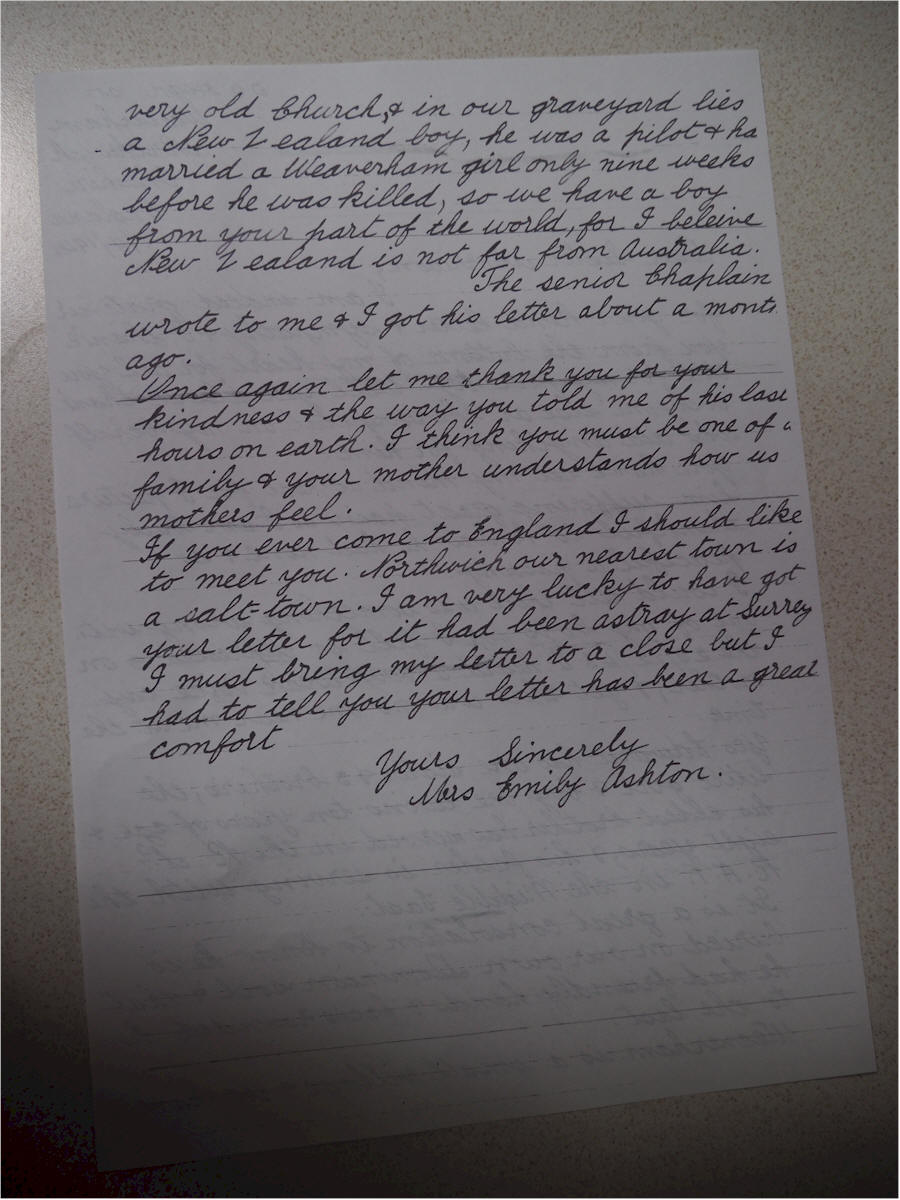 very old Church, & in our graveyard lies
a New Zealand boy, he was a pilot & ha
married a Weaverham girl only nine weeks
before he was killed, so we have a boy
from your part of the world, for I beleive
New Zealand is not far from Australia.
The senior Chaplain
wrote to me & I got his letter about a mont
ago.
Once again let me thank you for your
kindness & the way you told me of his last
hours on earth. I think you must be one of a
family & your mother understands how us
mothers feel.
If you ever come to England I should like
to meet you. Northwich our nearest town is
a salt-town. I am very lucky to have got
your letter for it had been astray at Surrey
I must bring my letter to a close but I
had to tell you your letter has been a great
comfort
Yours Sincerely
Mrs Emily Ashton.